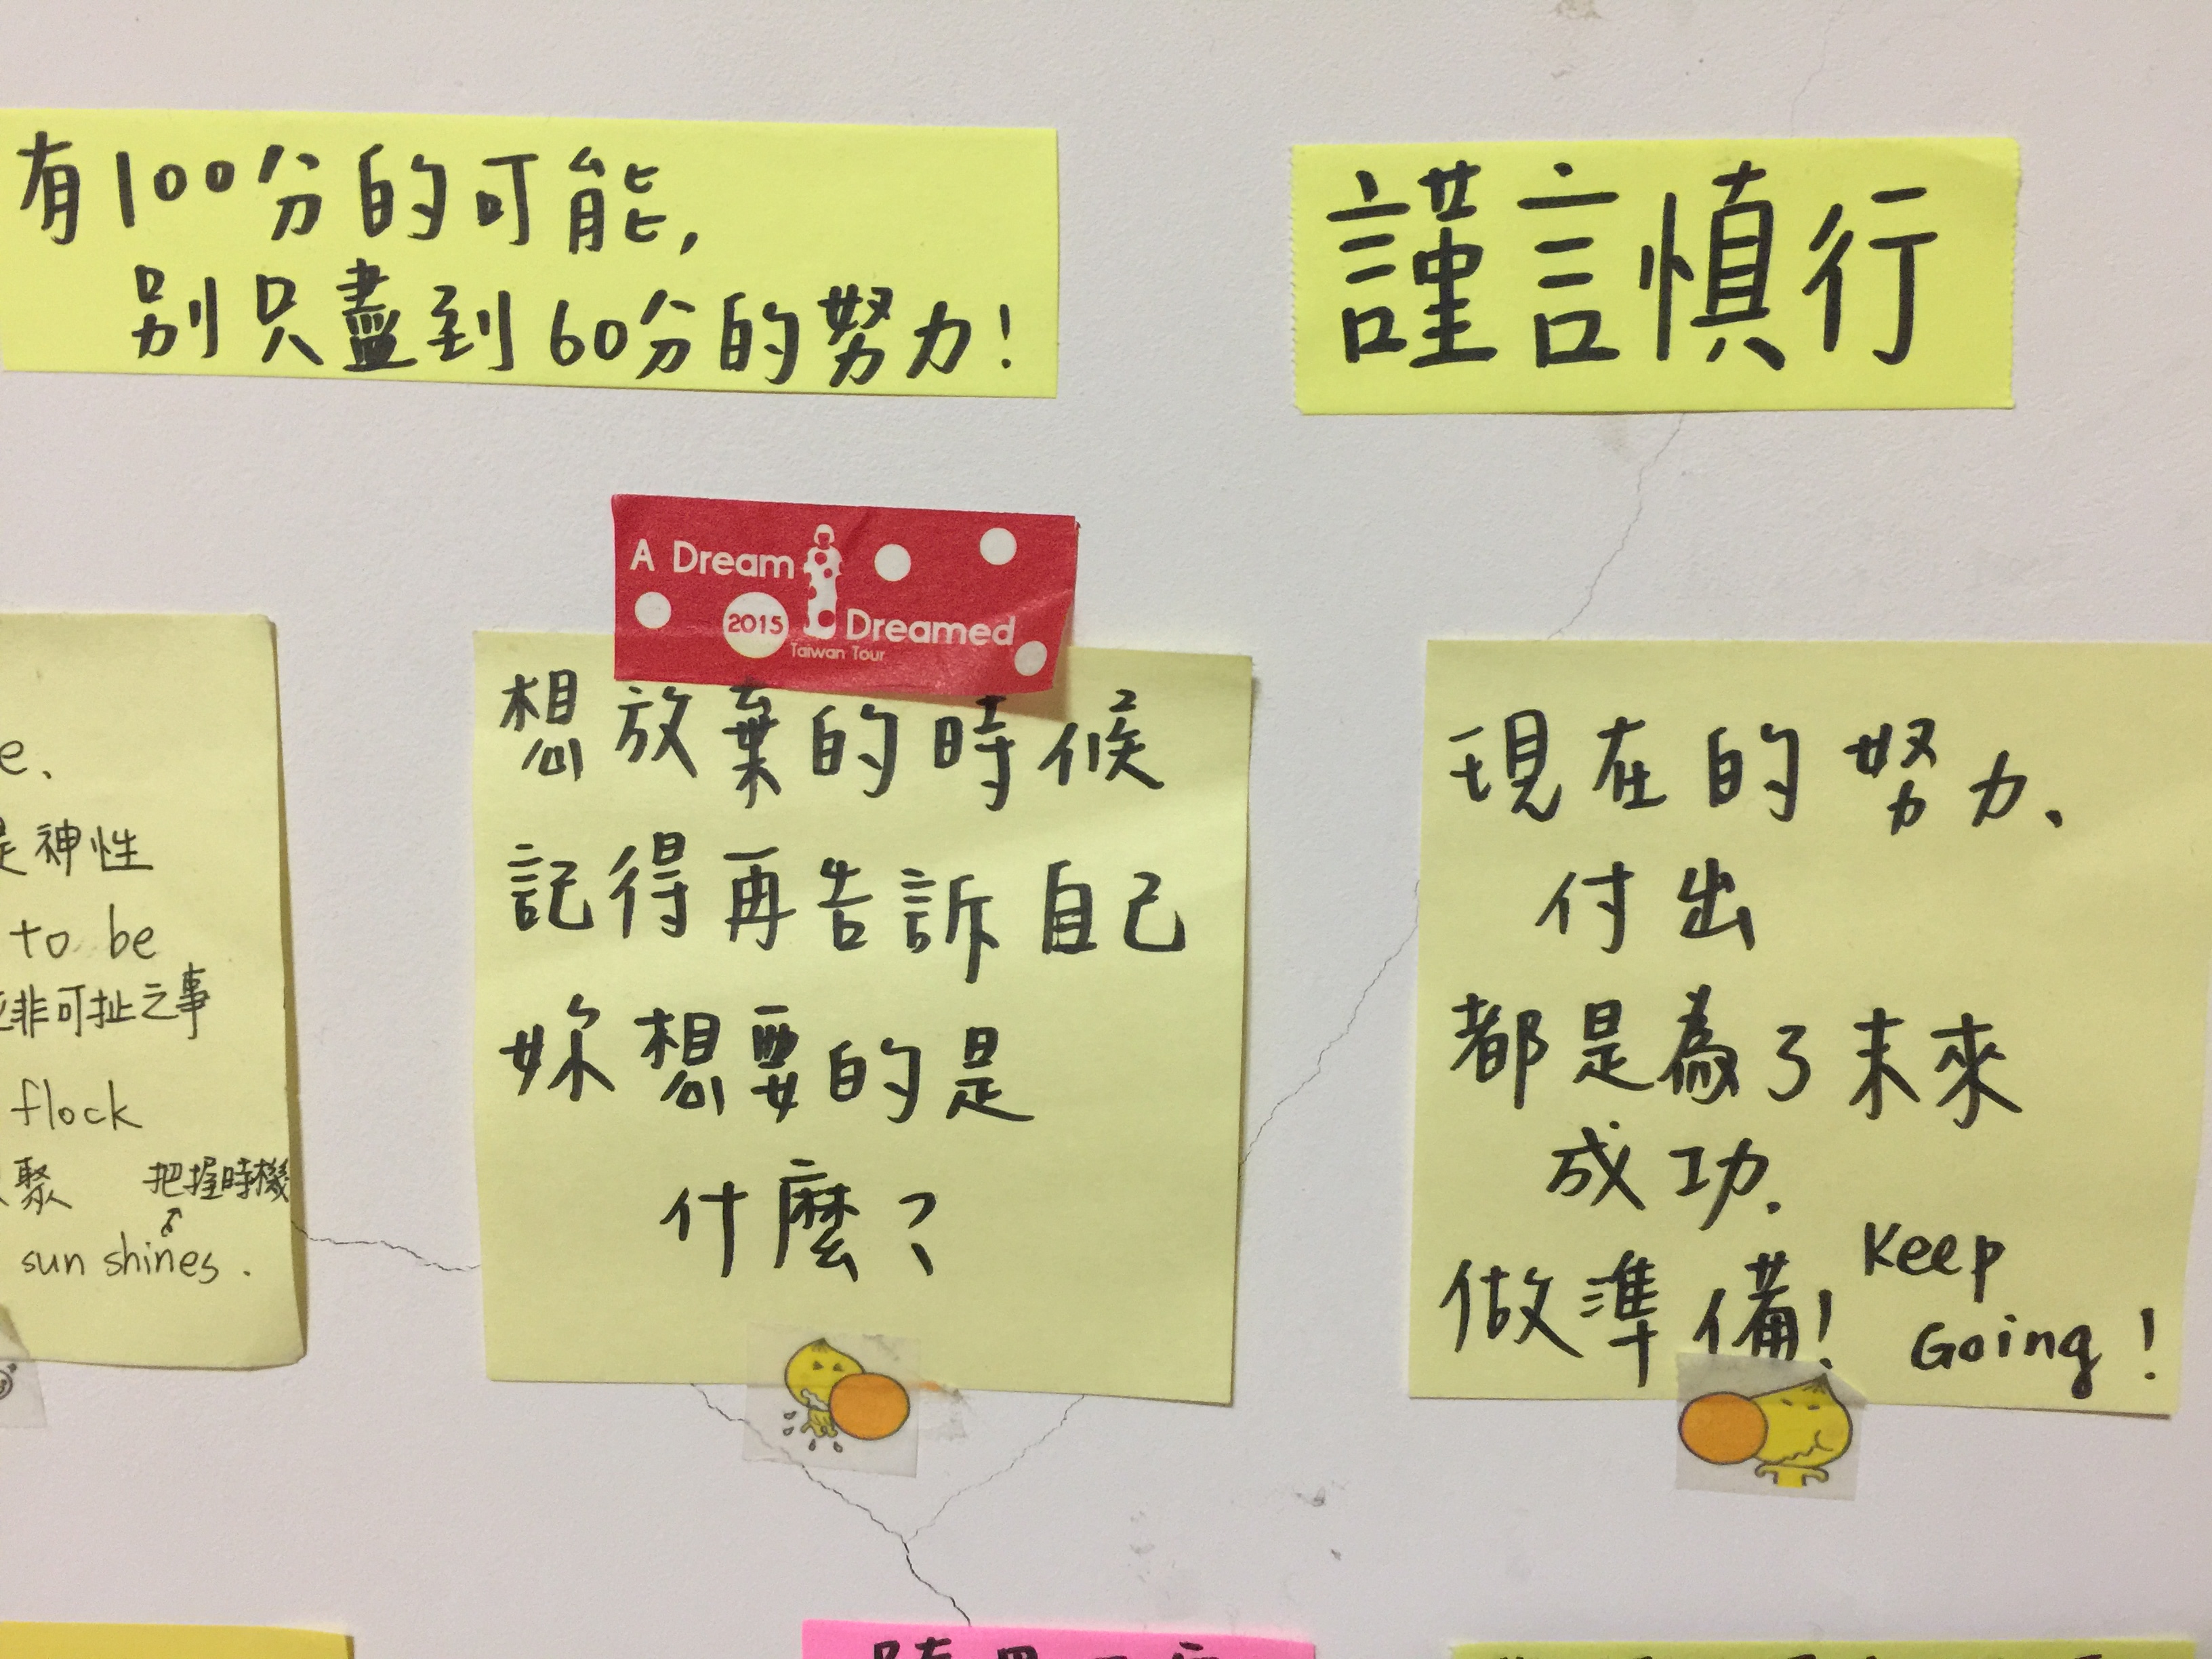 有100分的可能,
別只盡到60分的努力!
謹言慎行
A Dream
2015 Dreamed
Taiwan Tour
e、
是神性
to be
非可扯之事
flock
聚 把握時機
sun shines.
想放棄的時候
記得再告訴自己
妳想要的是
什麼?
現在的努力、
付出
都是為了未來
成功.
做準備!
Keep
Going!